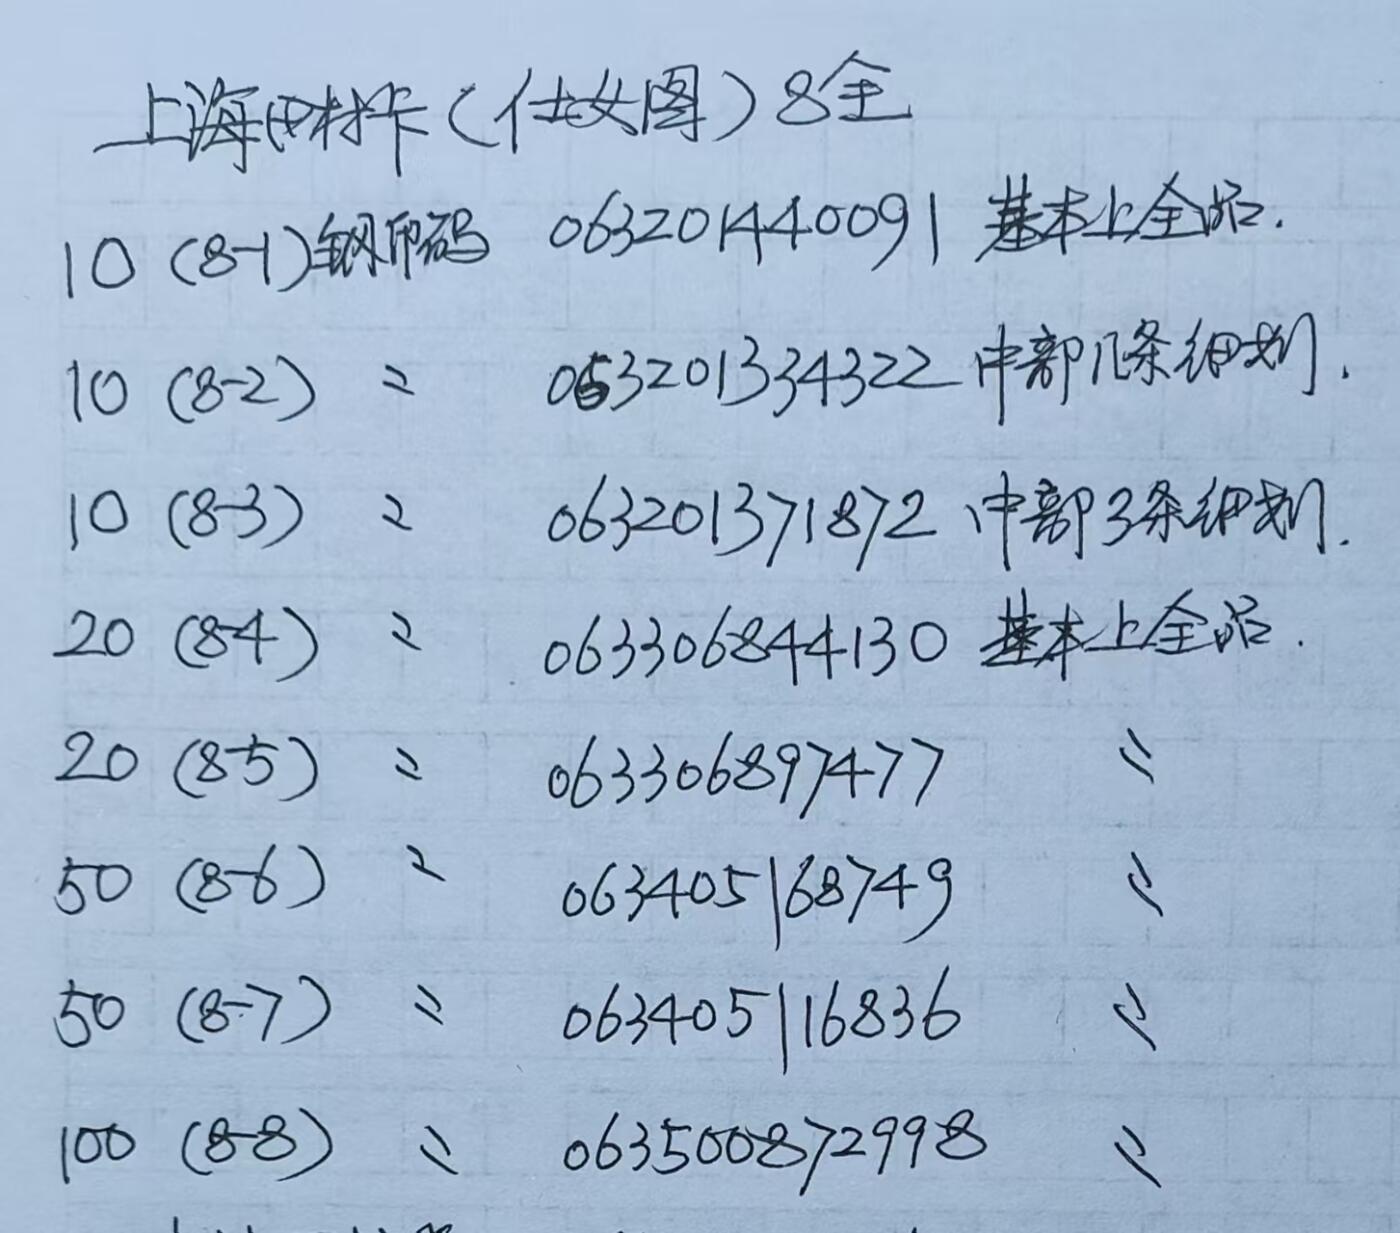 上海田村卡（仕女图）8全
10（8-1）钢印码 063201440091 基本上全品.
10（8-2）〃 063201334322 中部几条细划.
10（8-3）〃 063201371872 中部3条细划.
20（8-4）〃 063306844130 基本上全品.
20（8-5）〃 063306897477 〃
50（8-6）〃 063405168749 〃
50（8-7）〃 063405116836 〃
100（8-8）〃 063500872998 〃